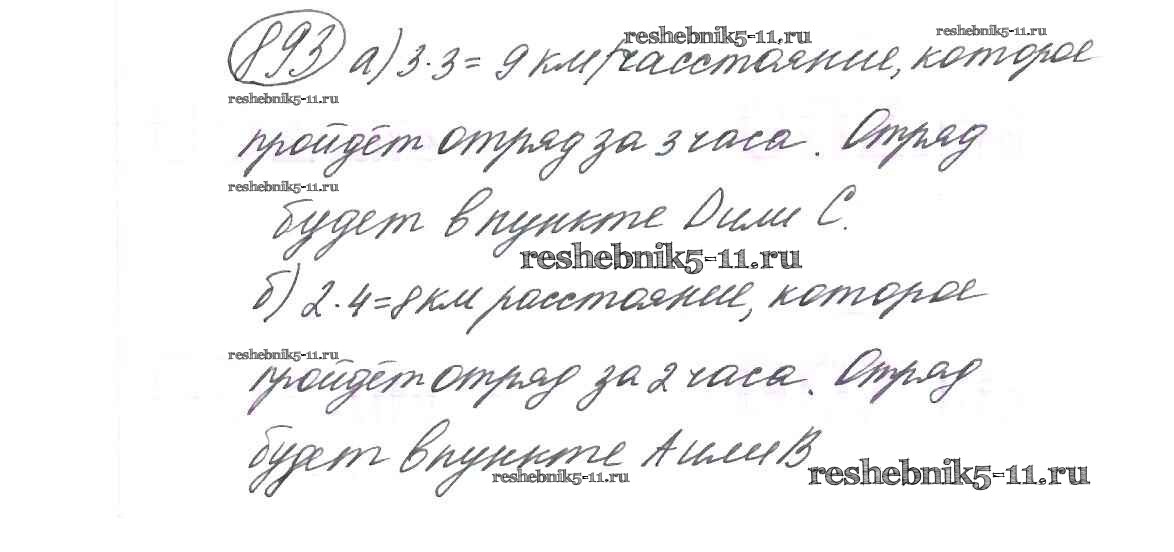 893 а) 3·3= 9 км расстояние, которое
reshebnik5-11.ru
reshebnik5-11.ru
reshebnik5-11.ru
пройдёт отряд за 3 часа. Отряд
reshebnik5-11.ru
будет в пункте D или C.
reshebnik5-11.ru
б) 2·4=8 км расстояние, которое
reshebnik5-11.ru
пройдёт отряд за 2 часа. Отряд
будет в пункте A или B
reshebnik5-11.ru
reshebnik5-11.ru